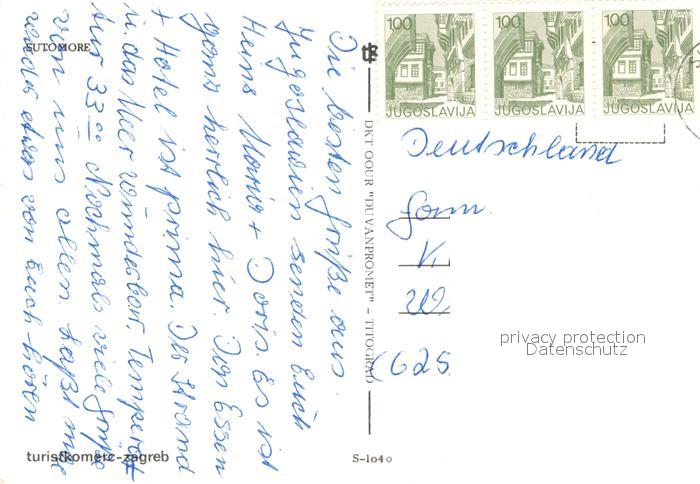 SUTOMORE
Die besten Grüße aus
Jugoslawien senden Euch
Heinz Maria + Doris. Es ist
ganz herrlich hier. Das Essen
+ Hotel ist prima. Der Strand
u. das Meer wunderbar. Temperat
Aus 33°° Nochmals viele Grüße
von uns allen. Laßt mal
etwas von Euch hören
turistkomerc-zagreb
DKT OOUR "DUVANPROMET" - TITOGRAD
S-1040
1.00 JUGOSLAVIJA
1.00 JUGOSLAVIJA
1.00 JUGOSLAVIJA
Deutschland
Fam.
K
W
(625
privacy protection
Datenschutz